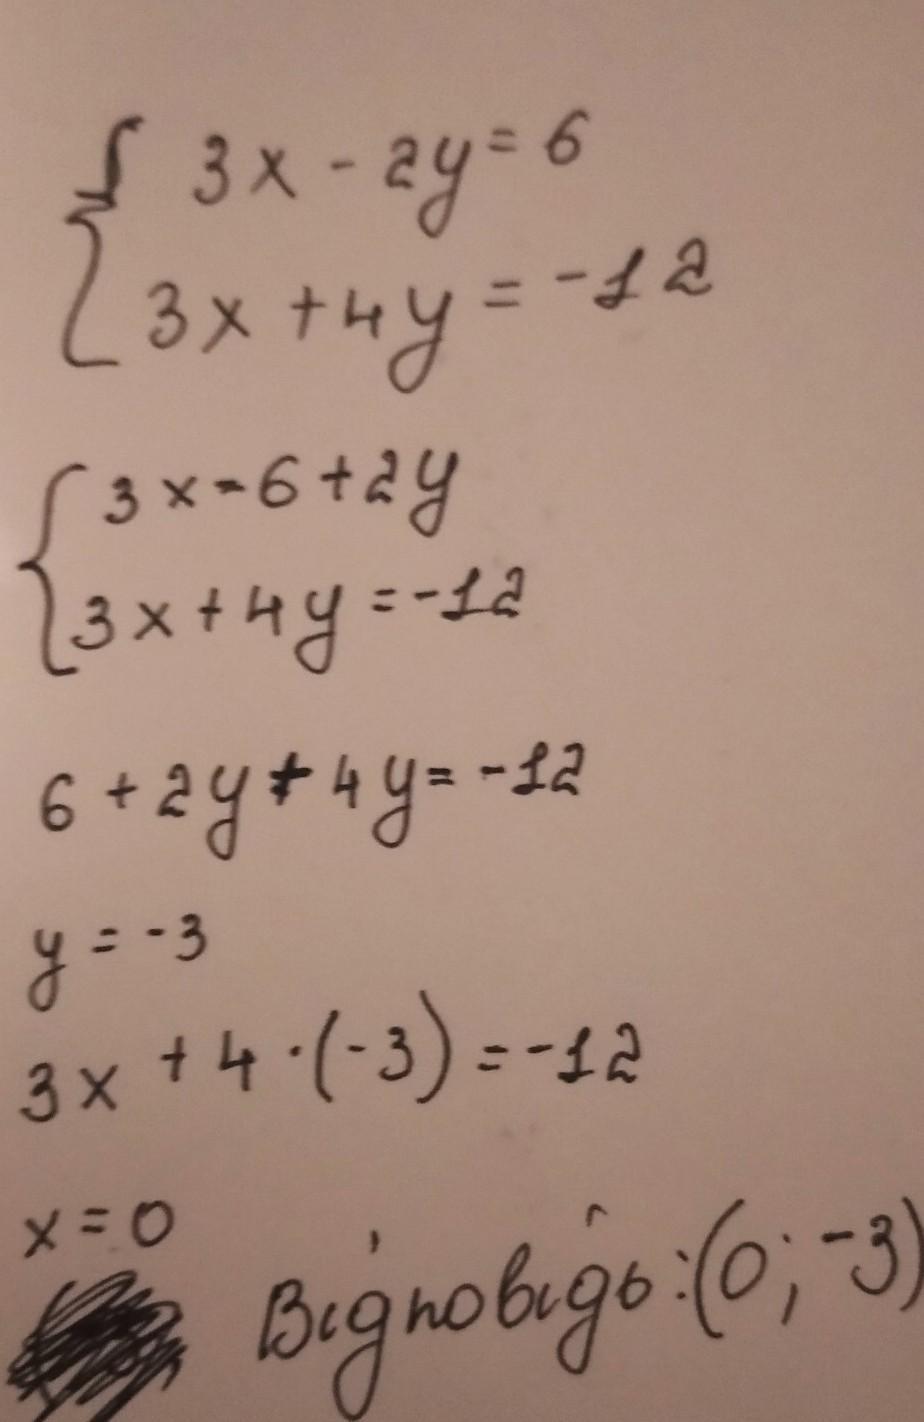 { 3x - 2y = 6
3x + 4y = -12
{ 3x - 6 + 2y
3x + 4y = -12
6 + 2y + 4y = -12
y = -3
3x + 4 · (-3) = -12
x = 0
Відповідь: (0; -3)